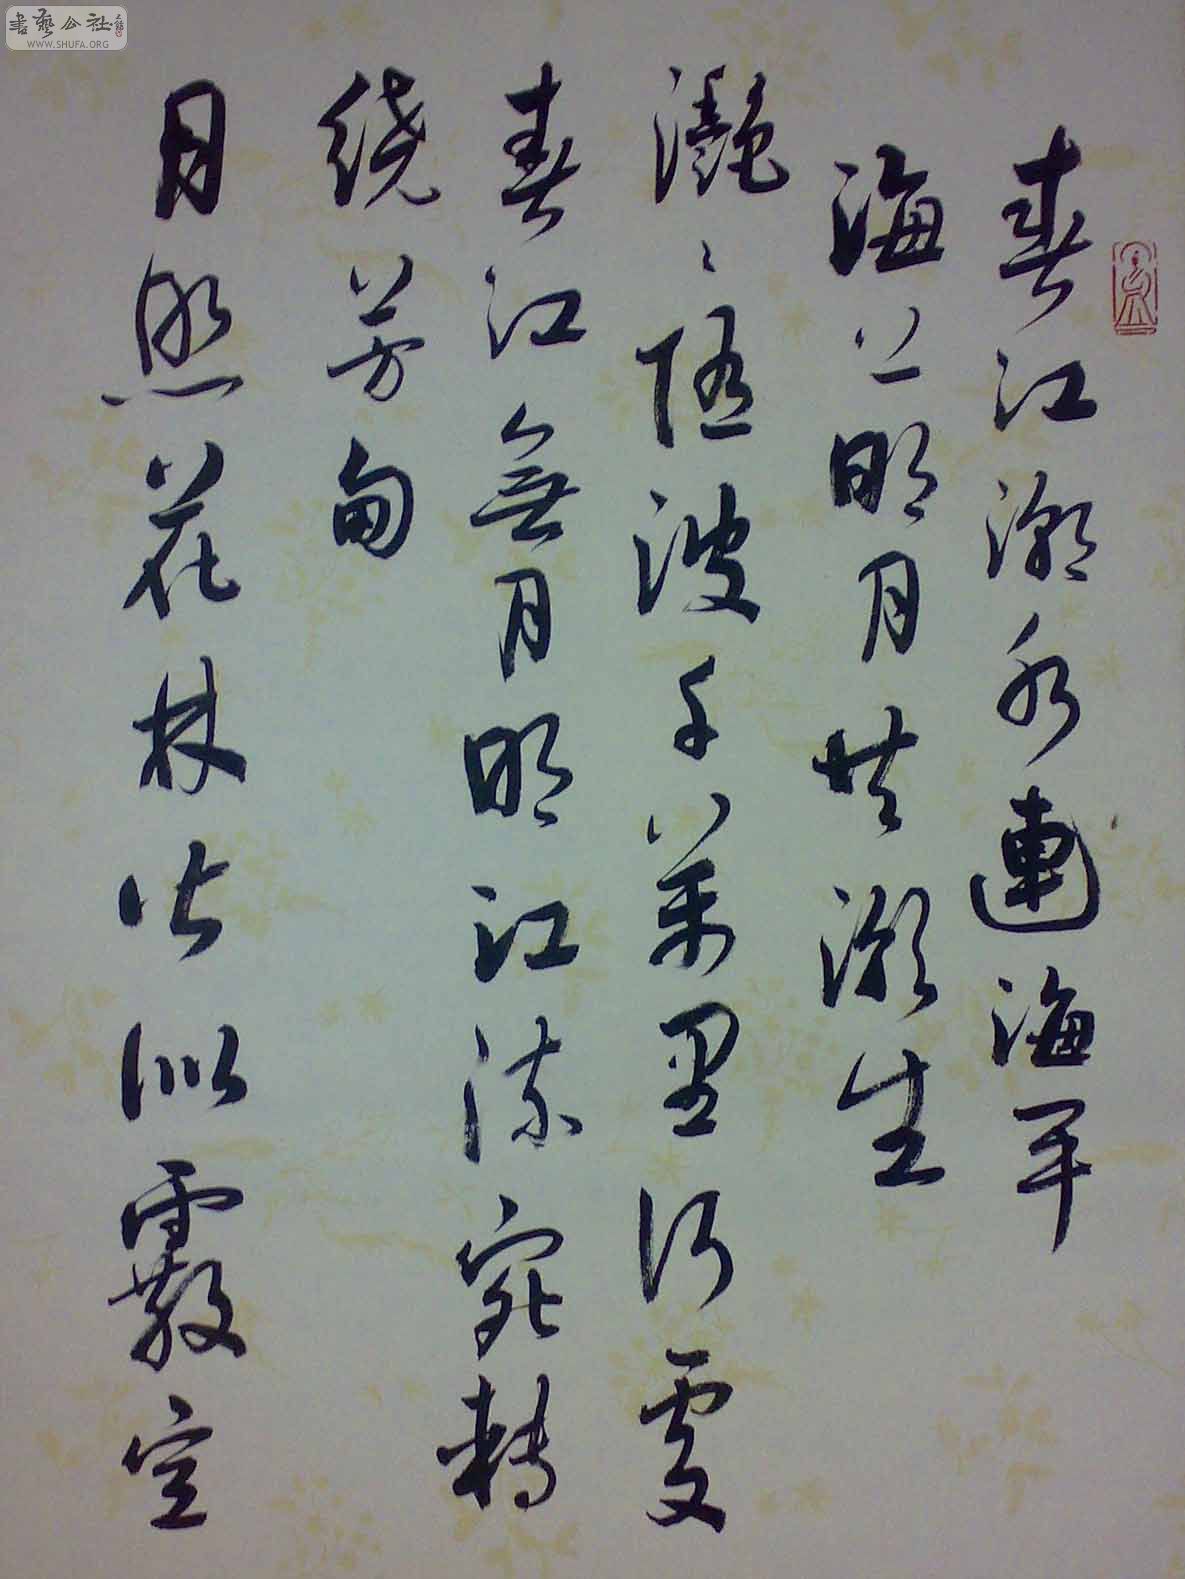 書藝公社
WWW.SHUFA.ORG
春江潮水連海平
海上明月共潮生
灔〻隨波千萬里何處
春江無月明江流宛轉
繞芳甸
月照花林皆似霰空